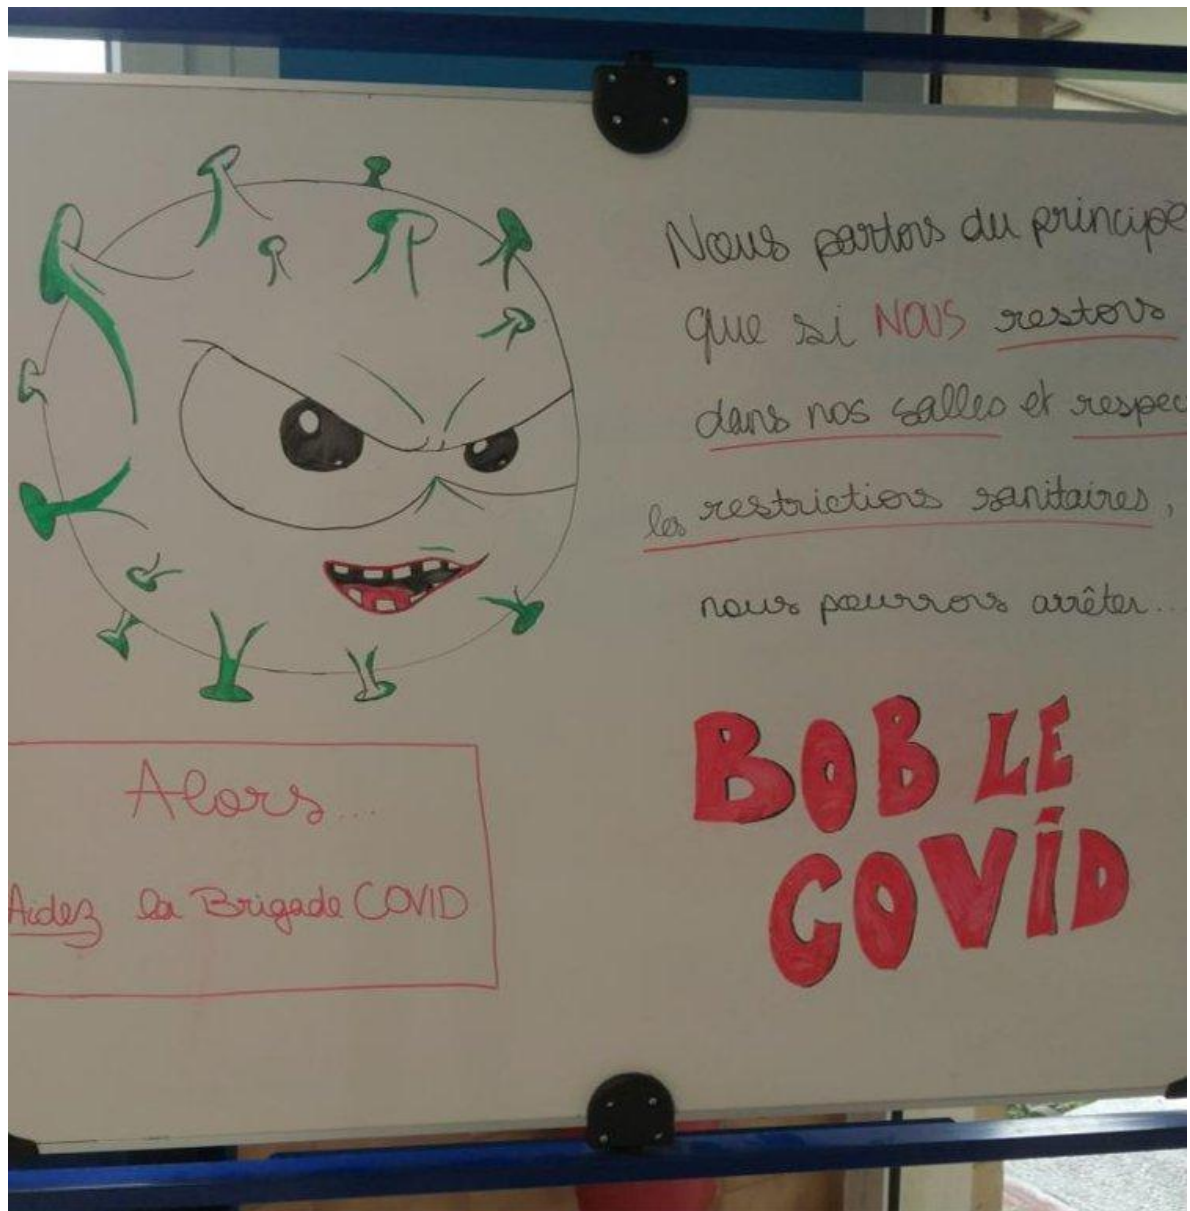 Nous partons du principe
que si NOUS restons
dans nos salles et respec
les restrictions sanitaires,
nous pourrons arrêter...
BOB LE
COVID
Alors...
Aidez la Brigade COVID